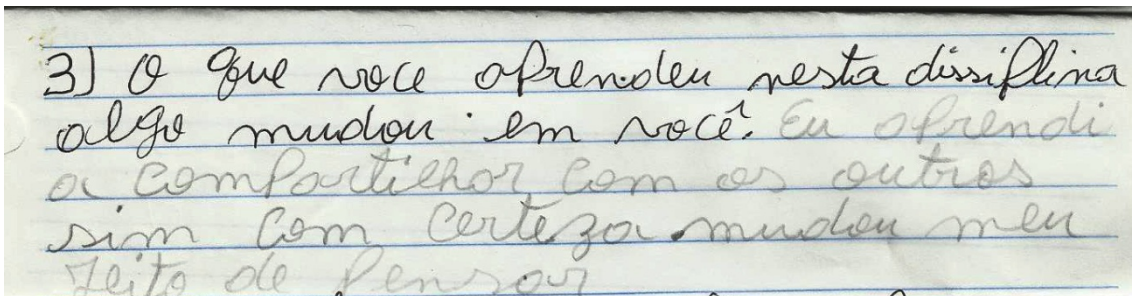 3) O que voce aprendeu nesta dissiplina
algo mudou em você. Eu aprendi
a compartilhar com os outros
sim com certeza mudou meu
jeito de pensar